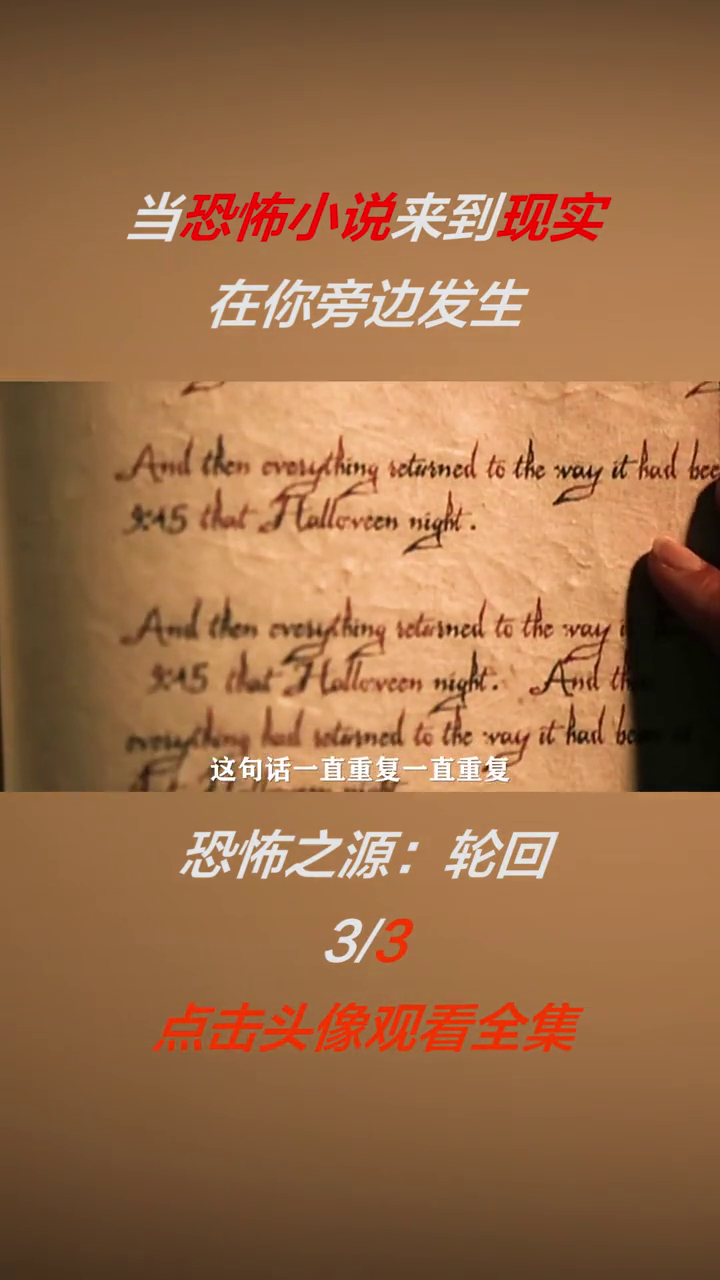 当恐怖小说来到现实
在你旁边发生
And then everything returned to the way it had bee
9:45 that Halloween night.
And then everything returned to the way
9:45 that Halloween night. And th
everything had returned to the way it had be
这句话一直重复一直重复
恐怖之源：轮回
3/3
点击头像观看全集